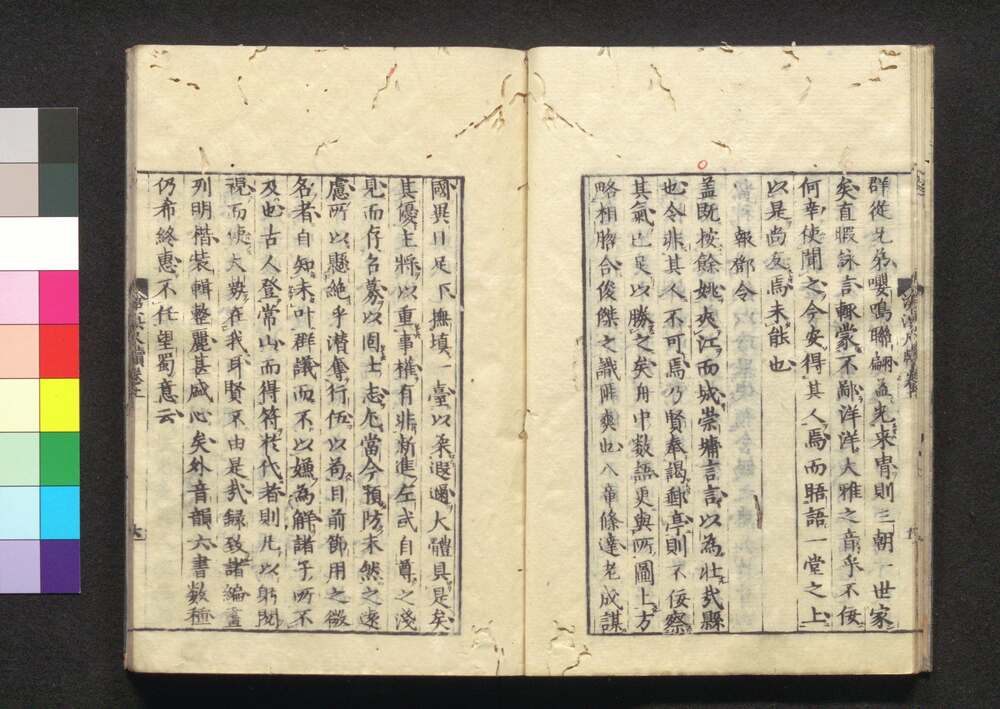 群從兄弟嚶鳴聯翩孟光求冑則三朝一世家
矣直暇詠言輒蒙不鄙洋洋大雅之音乎不佞
何幸使聞之今安得其人焉而晤語一堂之上
以是尚友焉未能也
報鄧令
蓋既按餘姚夾江而城崇墉言言以為壯哉縣
也令非其人不可焉乃賢奉謁郵亭則不佞察
其氣已足以勝之矣舟中數語更與所圖上方
略相脗合俊傑之識雖爽也八章條達老成謀
國異日足下撫填一臺以柔遐邇大體具是矣
其優主將以重事權有非漸進左或自尊之淺
見而存名募以固士志尤當今預防未然之遠
慮所以懸絕乎潛奪行伍以為目前節用之微
名者自知未叶群議而不以嫌為解諸子所不
及也古人登常山而得符於代者則凡以躬閱
視而使大數在我身賢不由是哉錄致諸編畫
列明楷裝輯整麗甚盛心矣外音韻六書數種
仍希終惠不任望蜀意云